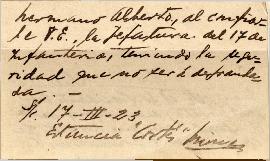 hermano Alberto, al confiar
le V.E., la Jefatura del 17 de
Infanteria, teniendo la segu-
ridad que no será defrauda-
da.-
17-III-23
Estancia "Cortés"